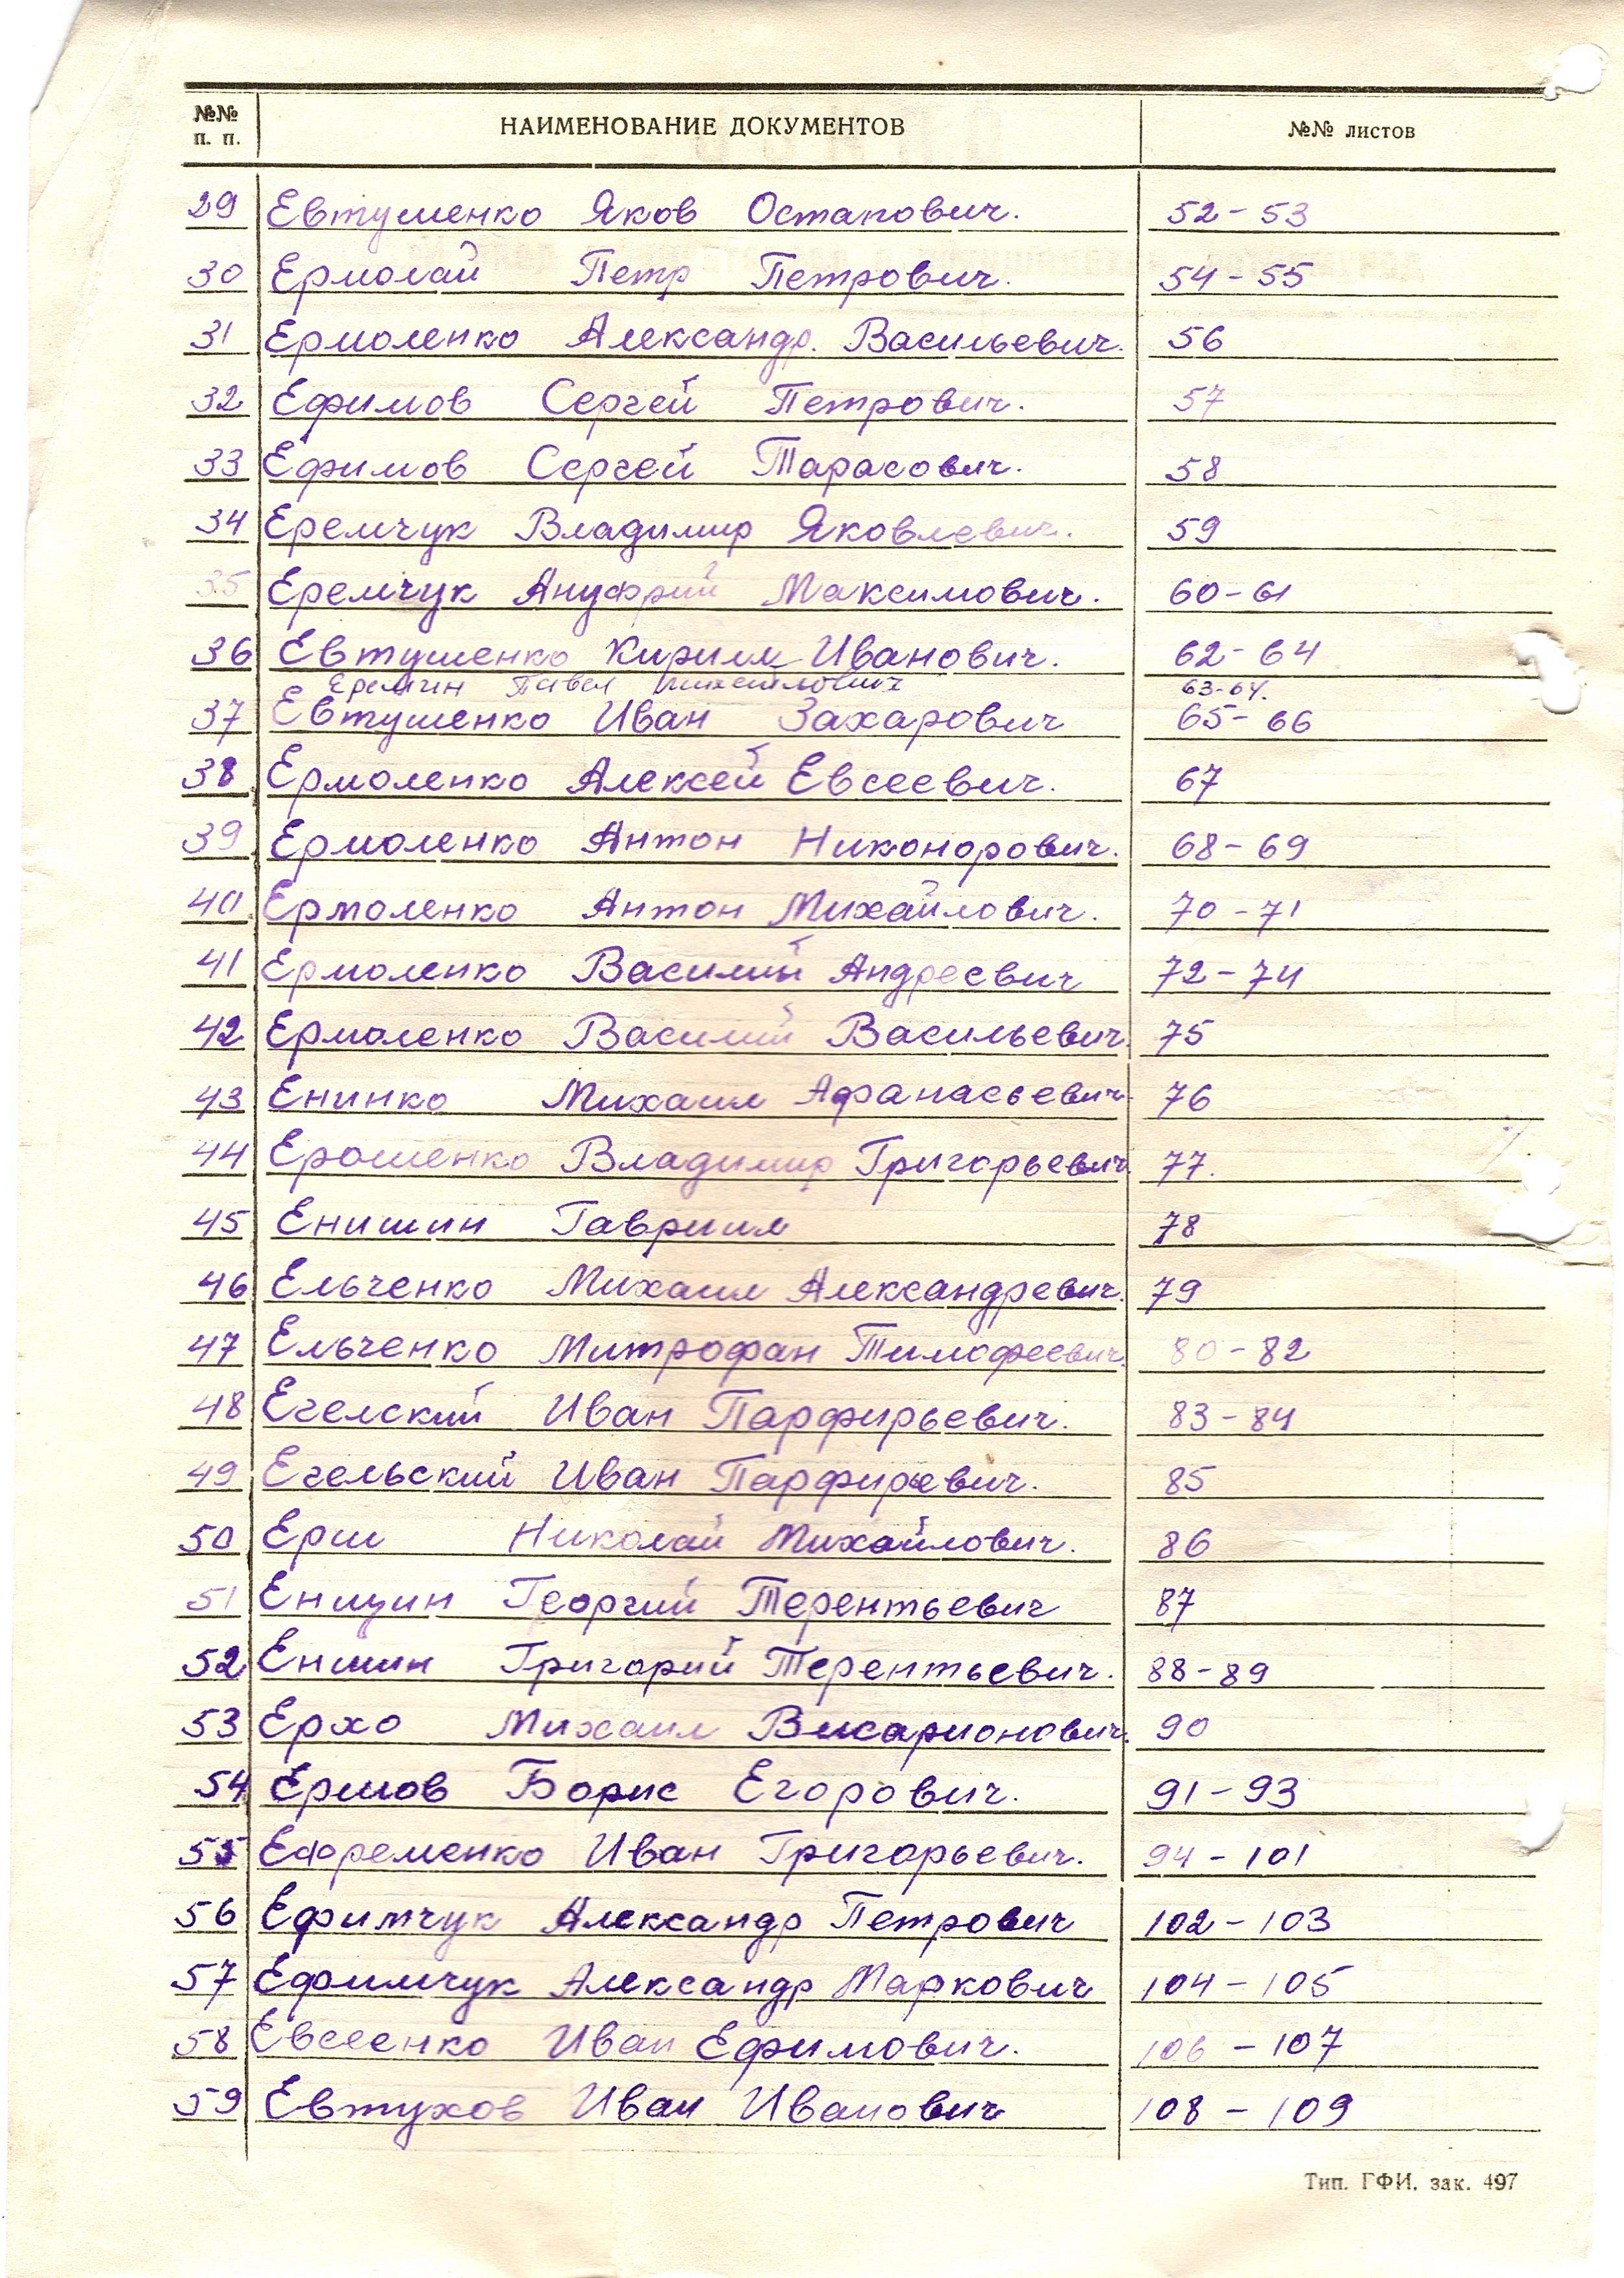 №№ п. п. НАИМЕНОВАНИЕ ДОКУМЕНТОВ №№ листов
29 Евтушенко Яков Остапович. 52-53
30 Ермолай Петр Петрович. 54-55
31 Ермоленко Александр. Васильевич. 56
32 Ефимов Сергей Петрович. 57
33 Ефимов Сергей Тарасович. 58
34 Еремчук Владимир Яковлевич. 59
35 Еремчук Ануфрий Максимович. 60-61
36 Евтушенко Кирилл Иванович. 62-64
Еремин Павел Михайлович 63-64.
37 Евтушенко Иван Захарович 65-66
38 Ермоленко Алексей Евсеевич. 67
39 Ермоленко Антон Никонорович. 68-69
40 Ермоленко Антон Михайлович. 70-71
41 Ермоленко Василий Андреевич 72-74
42 Ермоленко Василий Васильевич. 75
43 Енинко Михаил Афанасьевич. 76
44 Ерошенко Владимир Григорьевич. 77.
45 Енишин Гавриил 78
46 Ельченко Михаил Александревич. 79
47 Ельченко Митрофан Тимофеевич. 80-82
48 Егелский Иван Парфирьевич. 83-84
49 Егельский Иван Парфирьевич. 85
50 Ерш Николай Михайлович. 86
51 Георгий Терентьевич 87
52 Григорий Терентьевич. 88-89
53 Ерхо Михаил Висарионович. 90
54 Борис Егорович. 91-93
55 Ефременко Иван Григорьевич. 94-101
56 Ефимчук Александр Петрович 102-103
57 Ефимчук Александр Маркович 104-105
58 Евсеенко Иван Ефимович. 106-107
59 Евтухов Иван Иванович 108-109
Тип. ГФИ. зак. 497